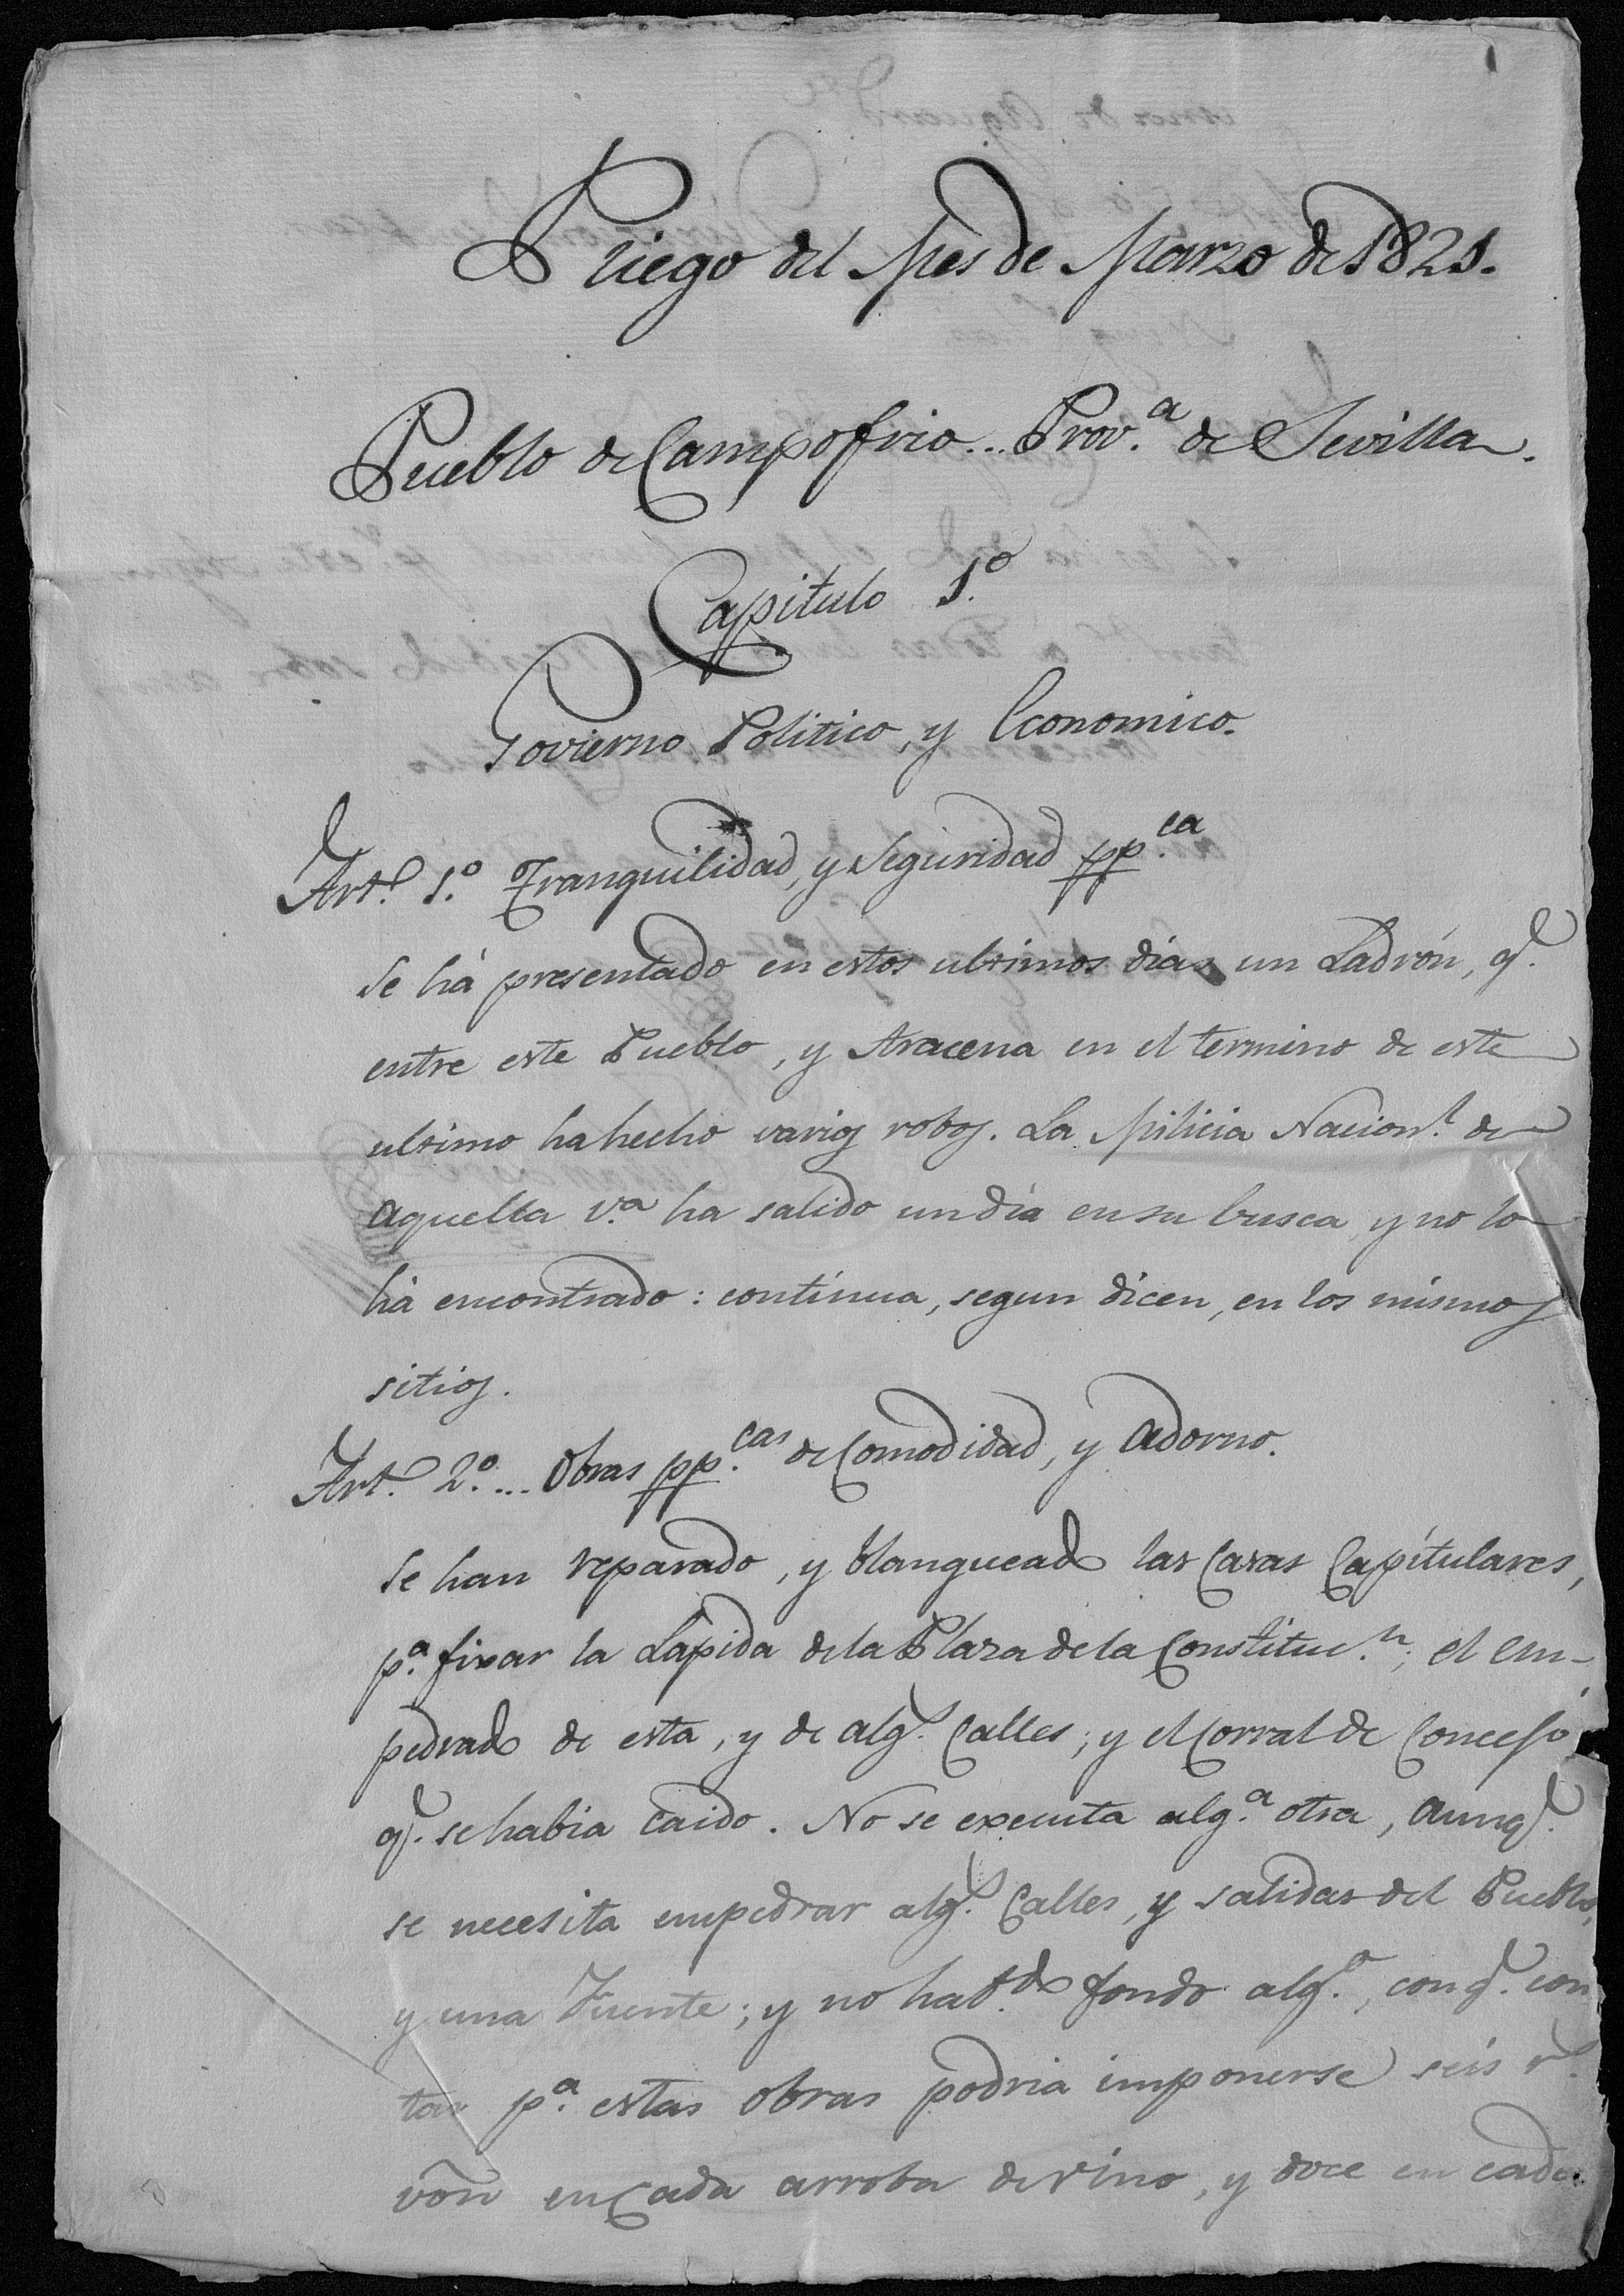 Pliego del Mes de Marzo de 1821.
Pueblo de Campofrio... Prov.ª de Sevilla.
Capitulo 1.º
Govierno Politico, y Economico.
Art.º 1.º Tranquilidad, y Seguridad pp.ca
Se há presentado en estos ultimos dias un Ladrón, q.e
entre este Pueblo, y Aracena en el termino de este
ultimo ha hecho varios robos. La Milicia Nacion.l de
aquella V.ª ha salido un dia en su busca, y no lo
há encontrado: contínua, segun dicen, en los mismos
sitios.
Art.º 2.º... Obras pp.cas de Comodidad, y adorno.
Se han reparado, y blanqueado las Casas Capitulares,
p.ª fixar la Lápida de la Plaza de la Constituc.n; el em-
pedrado de esta, y de alg.s Calles; y el Corral de Concejo
q.e se habia caido. No se executa alg.ª otra, aunq.e
se necesita empedrar alg.s Calles, y salidas del Pueblo,
y una Fuente; y no hab.do fondo alg.º, con q.e con
tar p.ª estas obras podria imponerse seis r.s
von en Cada arroba de vino, y doce en cada